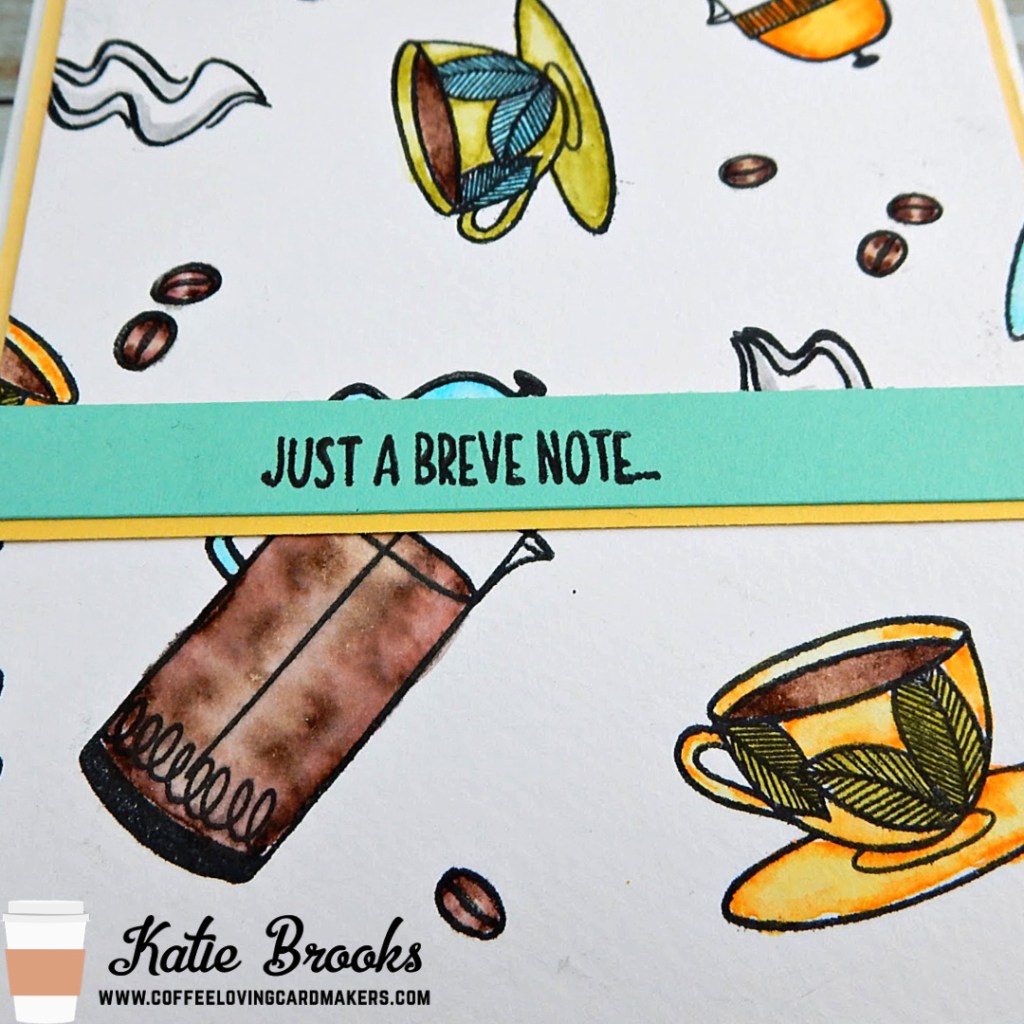 JUST A BREVE NOTE...
Katie Brooks
WWW.COFFEELOVINGCARDMAKERS.COM